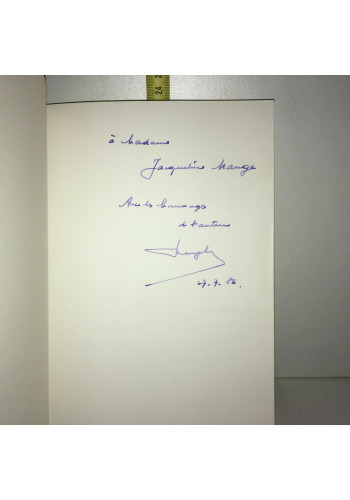 24
à Madame
Jacqueline Mange
Avec les hommages
de l'auteur
27.7.82.